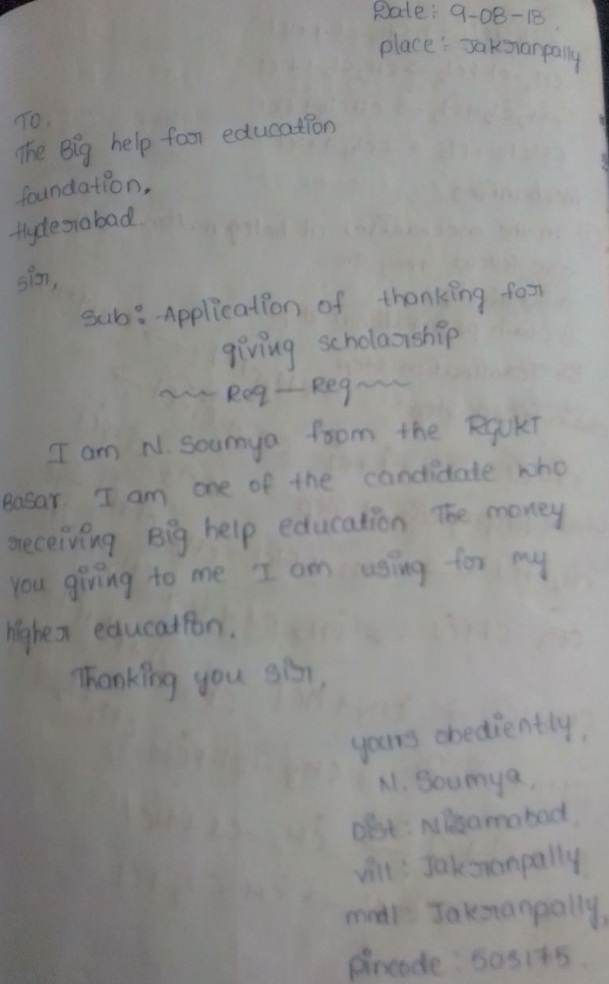 Date: 9-08-18.
place: Jakranpally
To,
The Big help for education
foundation,
Hyderabad
sir,
Sub: Application of thanking for
giving scholarship
~~ Req — Req ~~
I am N. Soumya from the RGUKT
Basar. I am one of the candidate who
receiving Big help education The money
you giving to me I am using for my
higher education.
Thanking you sir,
yours obediently,
N. Soumya.
Dist: Nizamabad.
vill: Jakranpally
mndl: Jakranpally,
pincode: 503175.